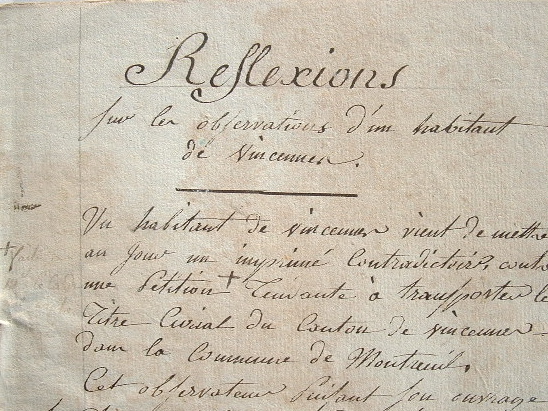 Reflexions
sur les observations d'un habitant
de Vincennes.
Un habitant de vincennes vient de mettre
au jour un imprimé Contradictoire, contre
une Petition + Tendante à transporter le
Titre Curial du Canton de vincennes
dans la Commune de Montreuil.
Cet observateur Puisant son ouvrage